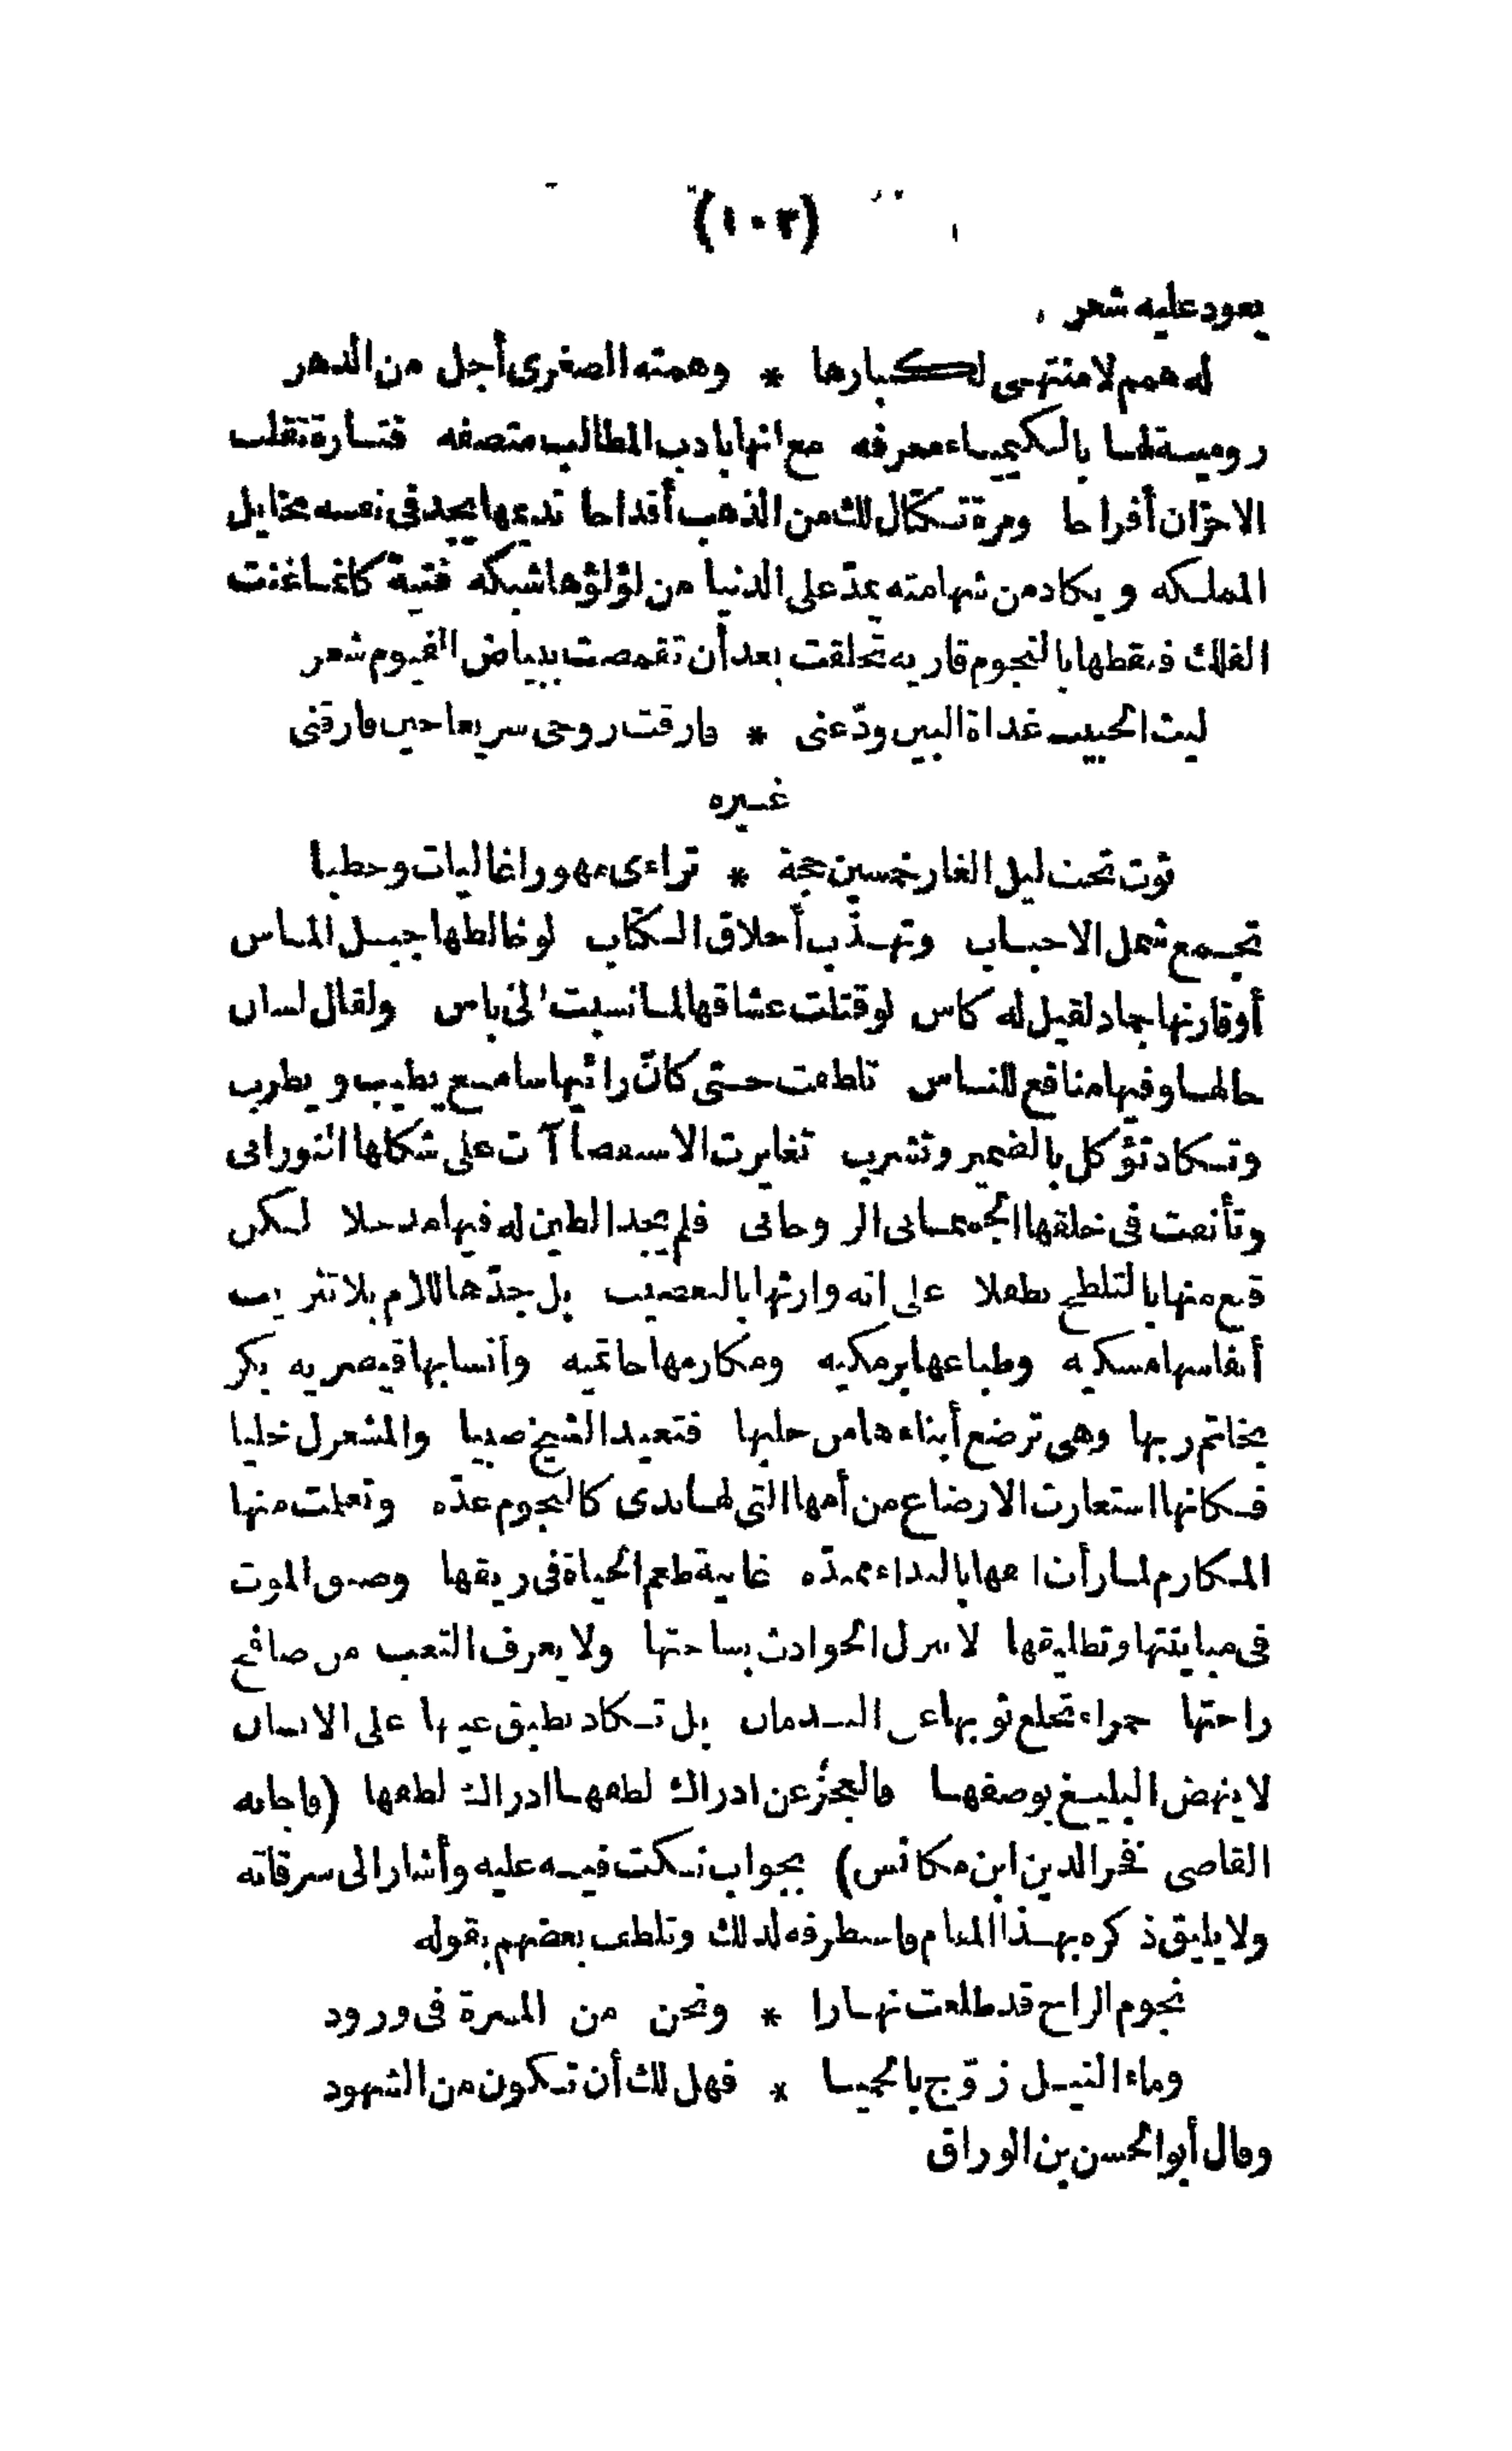 (١٠٣)
يعود عليه شعر
له همم لا منتهى لكبارها * وهمته الصغرى أجل من الدهر
رومية لها بالكيمياء معرفه مع انها بادب المطالب متصفه فتارة تقلب
الاحزان أفراحا ومرة تكتال لك من الذهب أقداحا نديمها يجد في نفسه مخايل
المملكه ويكاد من شهامته يمد على الدنيا من لؤلؤها شبكه فتية كأنما غنت
الفلك فنقطها بالنجوم قاريه تخلقت بعد أن تقمصت ببياض الغيوم شعر
ليت الحبيب غداة البين ودّعنى * فارقت روحى سريعا حين فارقنى
غيره
ثوت تحت ليل الغار خمسين حجة * تراءى مهورا غاليات وخطبا
تجمع شمل الاحباب وتهذّب أخلاق الكتاب لو خالطها جبل الماس
أو قارنها جماد لقيل له كاس لو قتلت عشاقها لما نسبت الى باس ولقال لسان
حالها وفيها منافع للناس تلطفت حتى كانّ رائيها سامع يطيب ويطرب
وتكاد تؤكل بالضمير وتشرب تغايرت الاستقصاآت على شكلها النورانى
وتأنفت فى خلقها الجسمانى الروحانى فلم يجد الطين له فيها مدخلا لكن
قنع منها بالتلطخ تطفلا على انه وارثها بالتعصيب بل جدّها للام بلا تثريب
أنفاسها مسكيه وطباعها برمكيه ومكارمها حاتميه وأنسابها قيصريه بكر
بخاتم ربها وهى ترضع أبناءها من حلبها فتعيد الشيخ صبيا والمشغول خليا
فكانها استعارت الارضاع من أمها التى لها ثدى كالنجوم عدّه وتعلمت منها
المكارم لما رأت امها بالنداء ممتدّه غانية طعم الحياة فى ريقها وضيق الموت
فى مباينتها وتطليقها لا تنزل الحوادث بساحتها ولا يعرف التعب من صافح
راحتها حمراء تخلع ثوبها على الندمان بل تكاد تطبق عينها على الانسان
لا ينهض البليغ بوصفها فالعجز عن ادراك لطفها ادراك لطفها (فاجابه
القاضى فخر الدين ابن مكانس) بجواب نكت فيه عليه وأشار الى سرقاته
ولا يليق ذكره بهذا المقام فاستطرفه لذلك وتلطف بعضهم بقوله
نجوم الراح قد طلعت نهارا * ونحن من المسرة فى ورود
وماء النيل زوّج بالحميا * فهل لك أن تكون من الشهود
وقال أبو الحسن بن الوراق